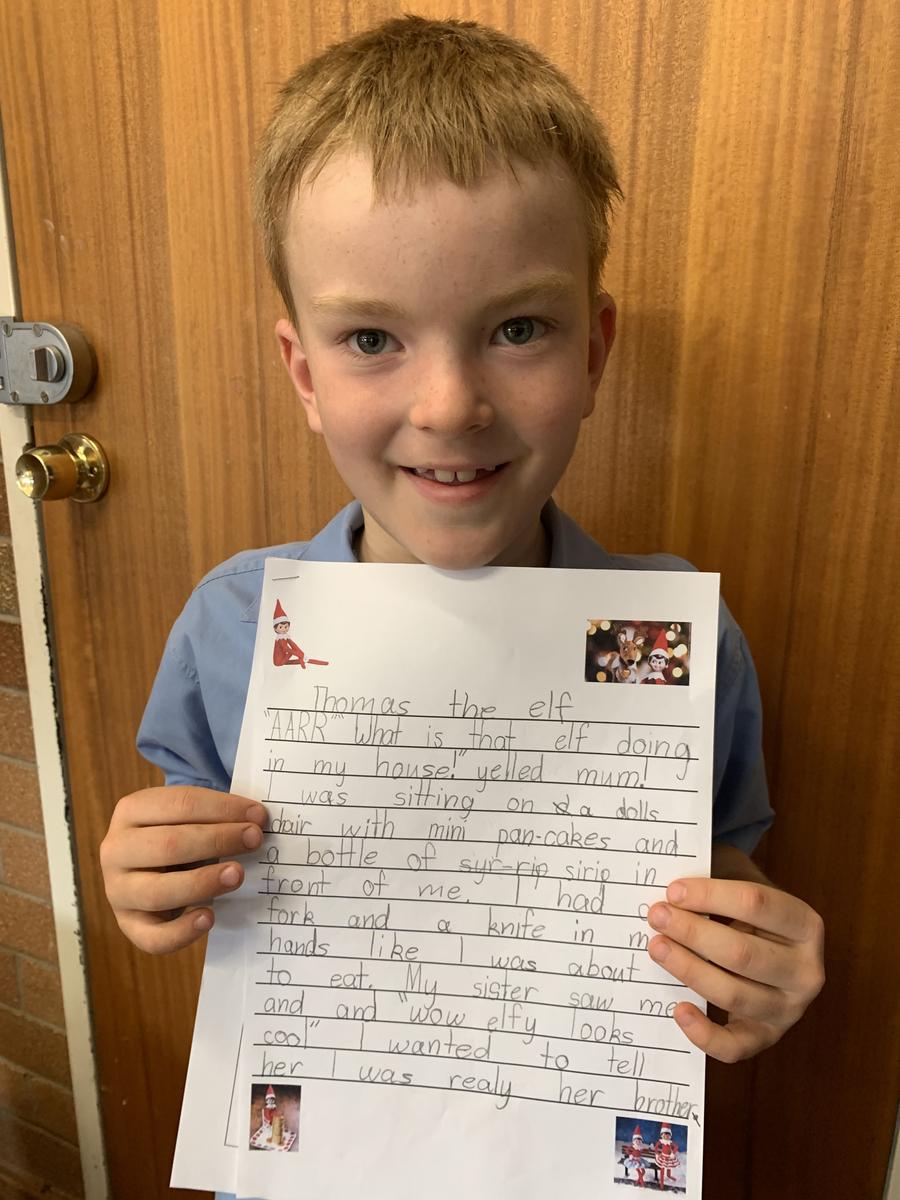 Thomas the elf
"AARR" What is that elf doing
in my house!" yelled mum!
I was sitting on a dolls
chair with mini pan-cakes and
a bottle of syr-rip sirip in
front of me. I had a
fork and a knife in m
hands like I was about
to eat. My sister saw me
and and "wow elfy looks
cool" I wanted to tell
her I was realy her brother.